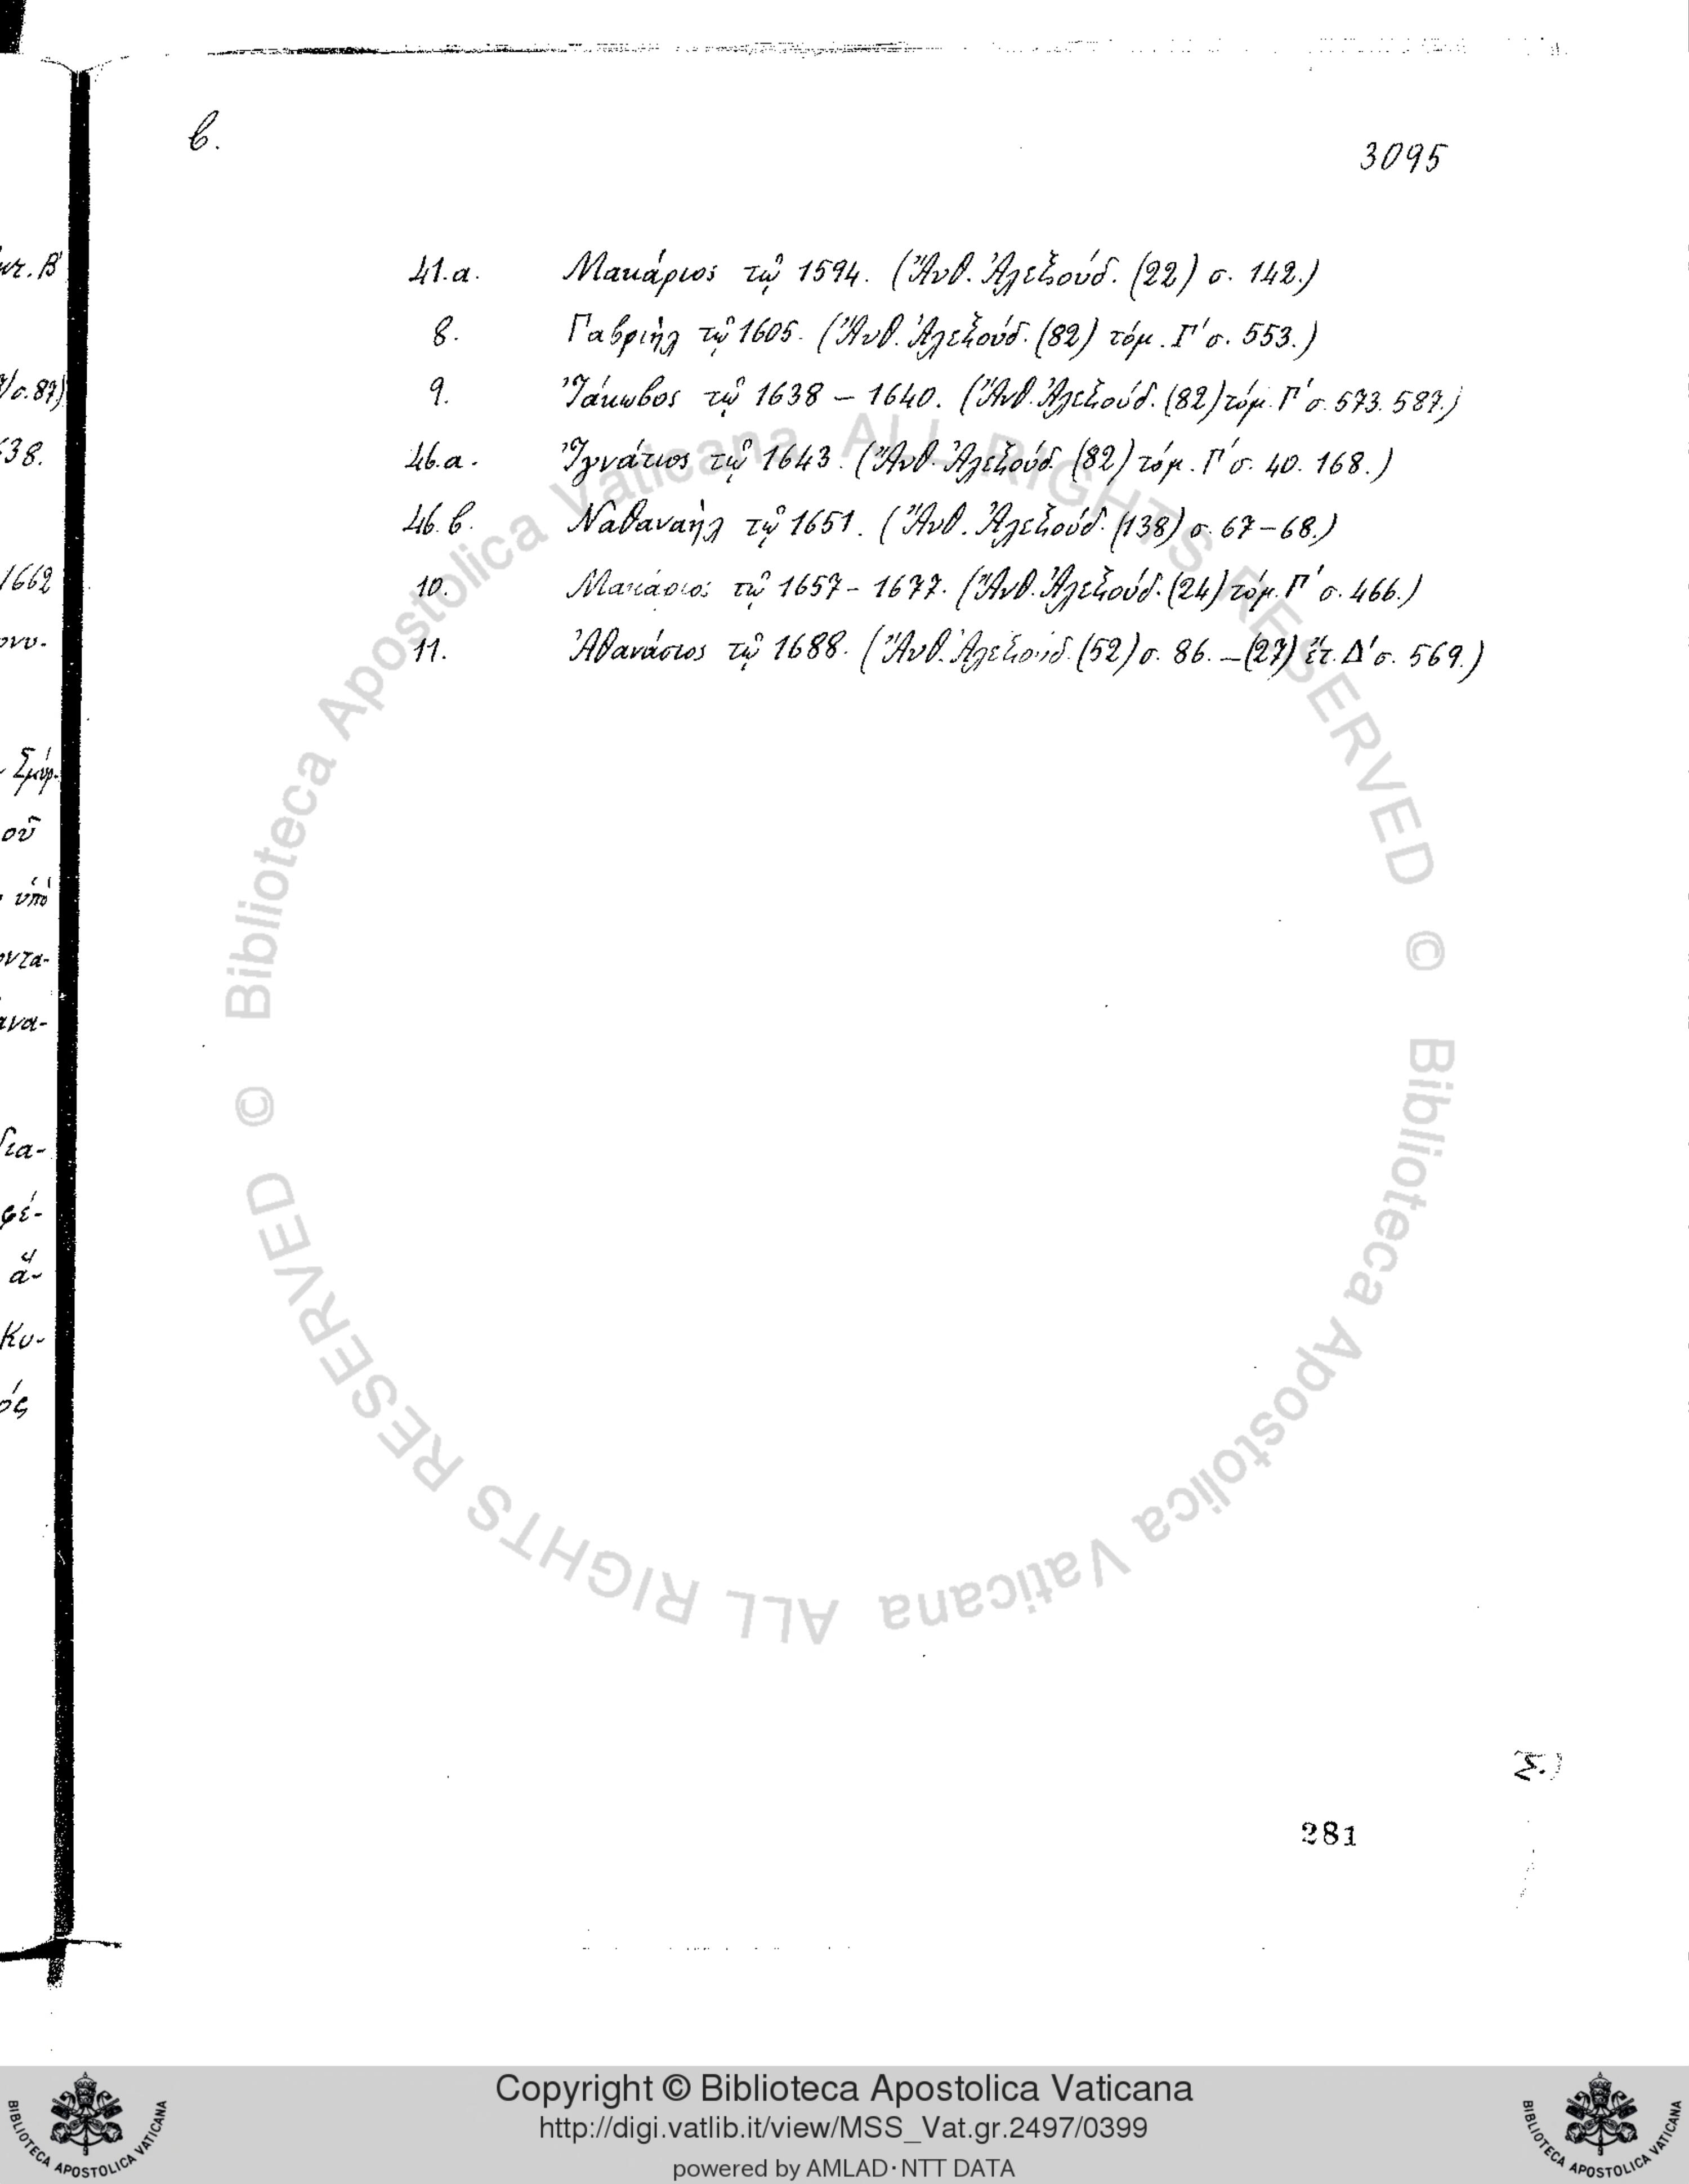 β.
3095
41.α. Μακάριος τῷ 1594. (Ἄνθ. Ἀλεξούδ. (22) σ. 142.)
8. Γαβριὴλ τῷ 1605. (Ἄνθ. Ἀλεξούδ. (82) τόμ. Γ′ σ. 553.)
9. Ἰάκωβος τῷ 1638 – 1640. (Ἄνθ. Ἀλεξούδ. (82) τόμ. Γ′ σ. 573. 587.)
46.α. Ἰγνάτιος τῷ 1643. (Ἄνθ. Ἀλεξούδ. (82) τόμ. Γ′ σ. 40. 168.)
46.β. Ναθαναὴλ τῷ 1651. (Ἄνθ. Ἀλεξούδ. (138) σ. 67–68.)
10. Μακάριος τῷ 1657 – 1677. (Ἄνθ. Ἀλεξούδ. (24) τόμ. Γ′ σ. 466.)
11. Ἀθανάσιος τῷ 1688. (Ἄνθ. Ἀλεξούδ. (52) σ. 86. – (27) ἔτ. Δ′ σ. 569.)
/σ.87)
38.
1662
Σμύρ-
οῦ
ὑπὸ
οντα-
ανα-
δια-
φέ-
ἅ-
Κυ-
ός
Σ.)
281
© Biblioteca Apostolica Vaticana ALL RIGHTS RESERVED
© Biblioteca Apostolica Vaticana ALL RIGHTS RESERVED
Copyright © Biblioteca Apostolica Vaticana
http://digi.vatlib.it/view/MSS_Vat.gr.2497/0399
powered by AMLAD·NTT DATA
BIBLIOTECA APOSTOLICA VATICANA
BIBLIOTECA APOSTOLICA VATICANA